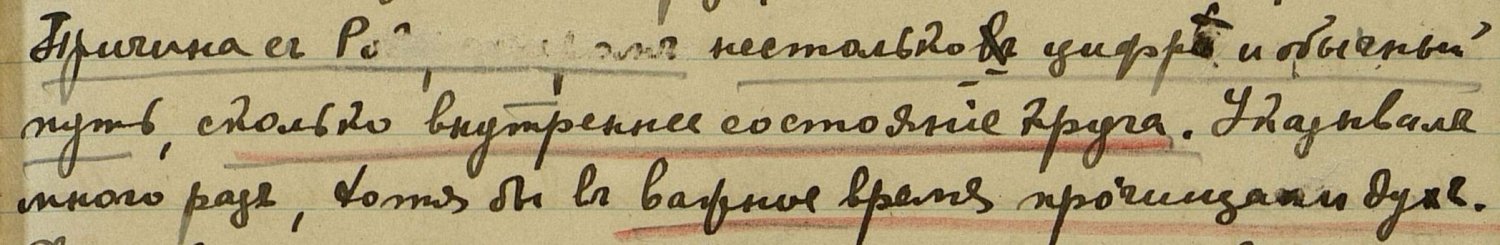 Причина съ нестолько въ цифрѣ и обычный
путь, сколько внутреннее состояніе круга. Указывала
много разъ, хотя бы въ важное время прочищали духъ.